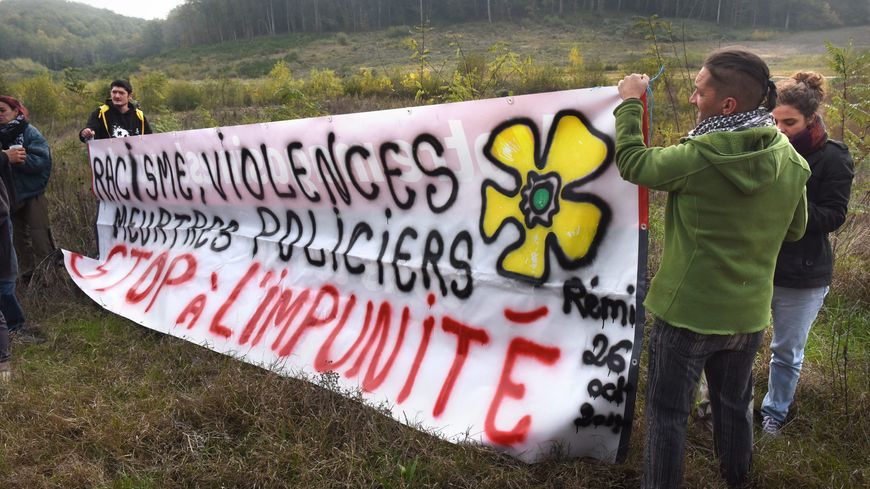 RACISME, VIOLENCES
MEURTRES POLICIERS
STOP À L'IMPUNITÉ
Rémi
26
oct